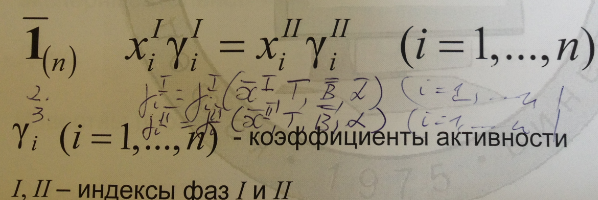 1̄₍ₙ₎ xᵢᴵ γᵢᴵ = xᵢᴵᴵ γᵢᴵᴵ (i = 1,...,n)
2. γᵢᴵ = γᵢᴵ (x̄ᴵ, T, B̄, ᾱ) (i = 1, ... n)
3. γᵢᴵᴵ = γᵢᴵᴵ (x̄ᴵᴵ, T, B̄, ᾱ) (i = 1, ... n)
γᵢ (i = 1,...,n) - коэффициенты активности
I, II – индексы фаз I и II
1975